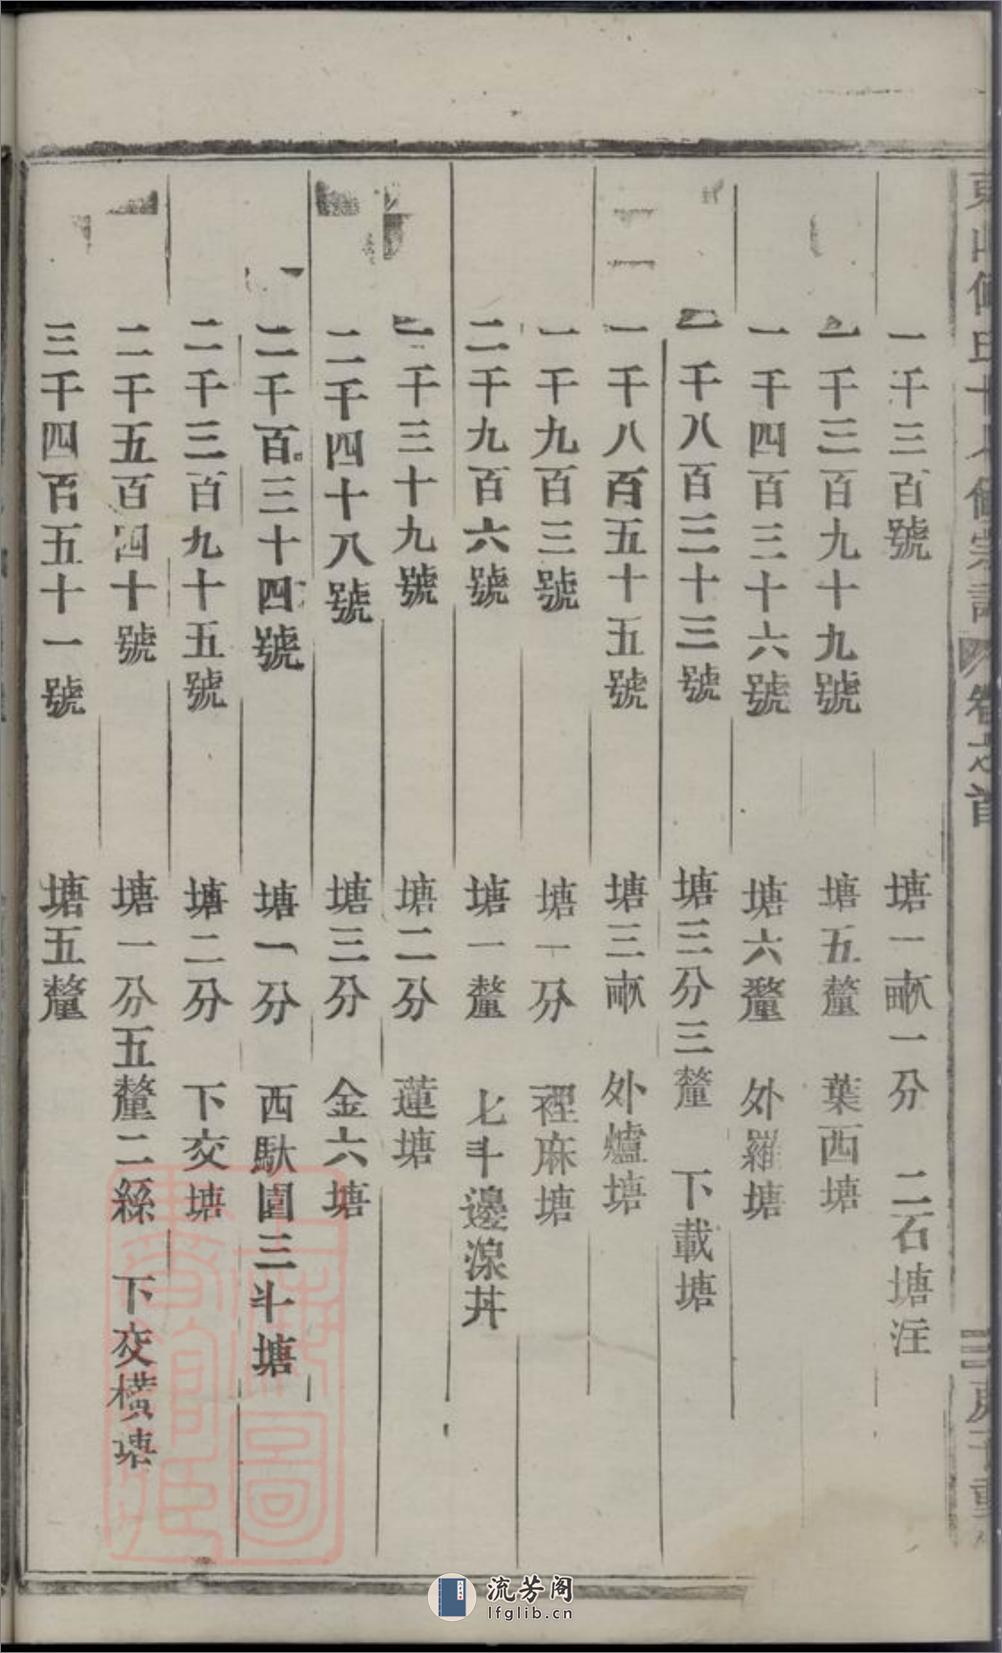 一千三百號 塘一畝一分 二石塘注
一千三百九十九號 塘五釐 葉西塘
一千四百三十六號 塘六釐 外羅塘
一千八百三十三號 塘三分三釐 下載塘
一千八百五十五號 塘三畝 外爐塘
一千九百三號 塘一分 裡麻塘
二千九百六號 塘一釐 七斗邊湶井
二千三十九號 塘二分 蓮塘
二千四十八號 塘三分 金六塘
二千百三十四號 塘一分 西馱園三斗塘
二千三百九十五號 塘二分 下交塘
二千五百四十號 塘一分五釐二絲 下交橫塘
三千四百五十一號 塘五釐
卷之首
流芳阁
lfglib.cn